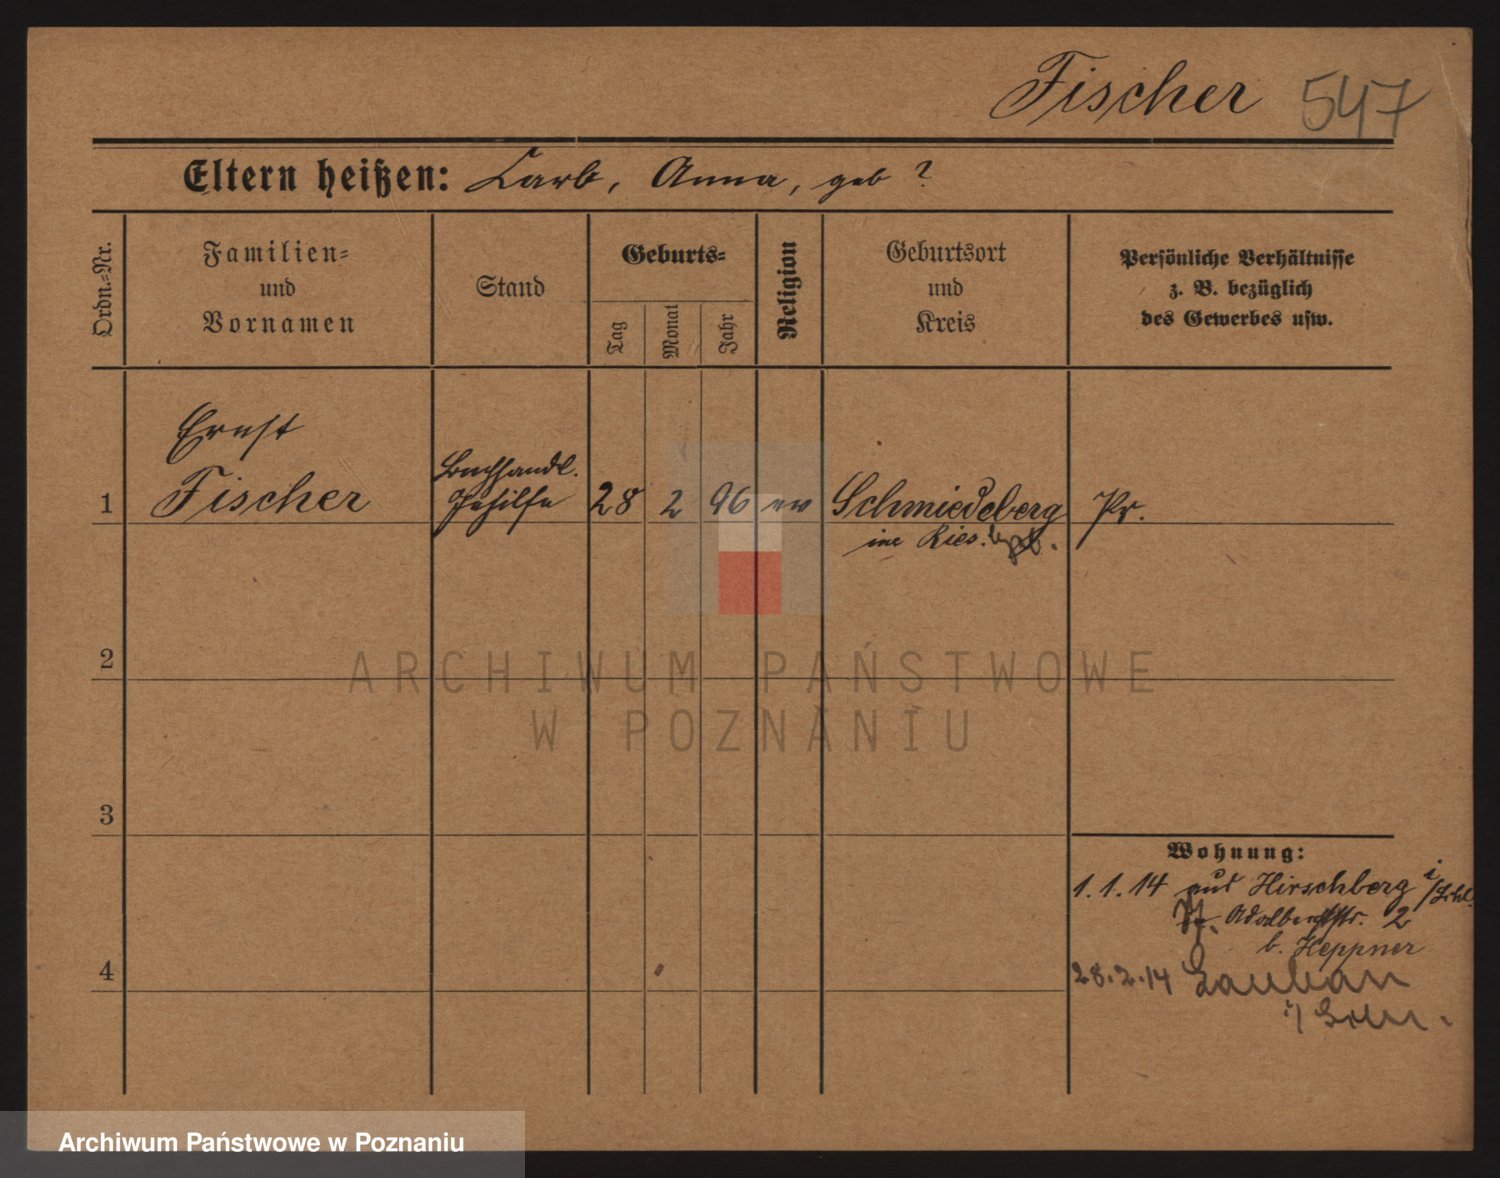 Fischer 547
Eltern heißen: Karl, Anna, geb ?
Ordn.-Nr.
Familien-
und
Vornamen
Stand
Geburts-
Tag
Monat
Jahr
Religion
Geburtsort
und
Kreis
Persönliche Verhältnisse
z. B. bezüglich
des Gewerbes usw.
Ernst
1 Fischer
Buchhandl.
Gehilfe
28 2 96 ev Schmiedeberg Pr.
im Ries.
2
3
4
Wohnung:
1.1.14 aus Hirschberg i/Schl.
Adalbertstr. 2
b. Heppner
28.2.14 Lauban
i/ Schl.
ARCHIWUM PAŃSTWOWE
W POZNANIU
Archiwum Państwowe w Poznaniu